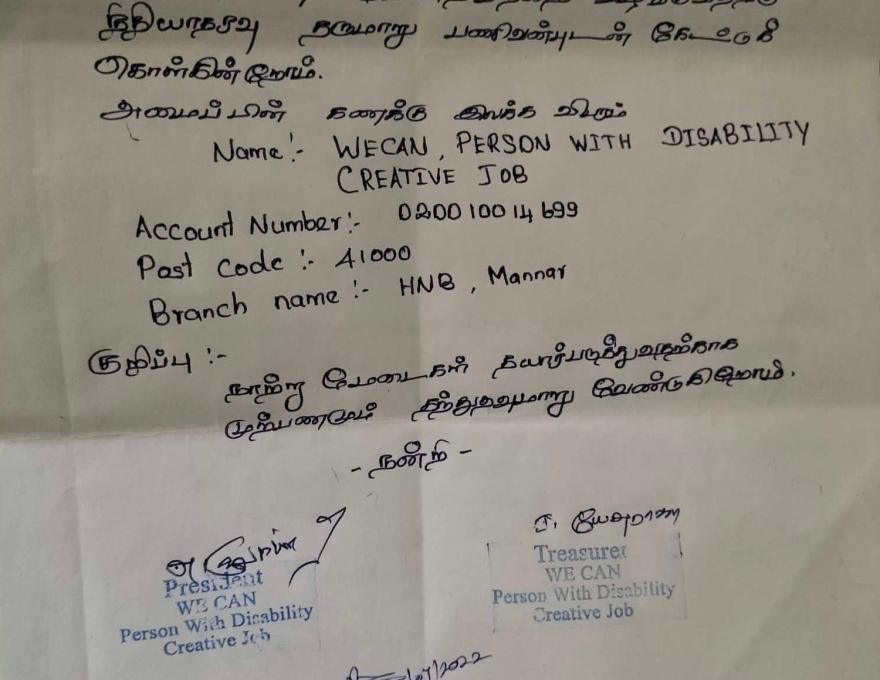 நிதியாகவு தருமாறு பணிவன்புடன் கேட்டுக்
கொள்கின்றோம்.
அமைப்பின் கணக்கு இலக்க விபரம்
Name :- WECAN, PERSON WITH DISABILITY
CREATIVE JOB
Account Number :- 020010014699
Post Code :- 41000
Branch name :- HNB, Mannar
குறிப்பு :-
நாற்று மேடைகள் தயார்படுத்துவதற்காக
முற்பணமும் தந்துதவுமாறு வேண்டுகிறோம்.
- நன்றி -
President
WE CAN
Person With Disability
Creative Job
Treasurer
WE CAN
Person With Disability
Creative Job
/2022